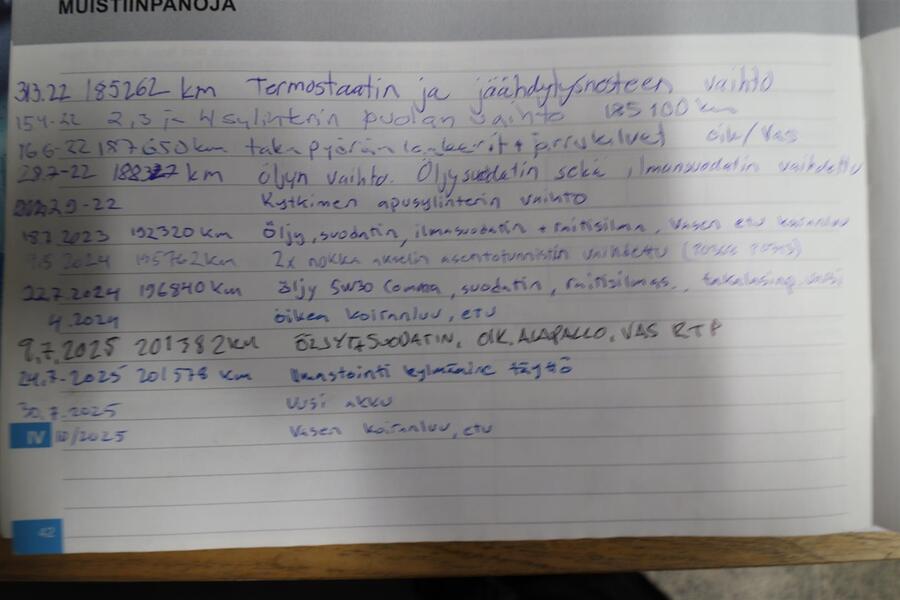 MUISTIINPANOJA
31.3.22 185262 km Termostaatin ja jäähdytysnesteen vaihto
15.4-22 2,3 ja 4 sylinterin puolan vaihto 185100 km
16.6-22 187650 km takapyörän laakerit + jarrukilvet oik/vas
28.7-22 km Öljyn vaihto. Öljysuodatin sekä ilmansuodatin vaihdettu
29-22 Kytkimen apusylinterin vaihto
18.7.2023 192320 km Öljy, suodatin, ilmasuodatin + raitisilma, vasen etu koiranluu
9.5.2024 195762 km 2x nokka akselin asentotunnistin vaihdettu
22.7.2024 196840 km öljy 5w30 Comma, suodatin, raitisilmas.,
4.2024 oikea koiranluu, etu
9.7.2025 201382 km ÖLJY+SUODATIN, OIK. ALAPALLO, VAS RTP
24.7-2025 201578 km Ilmastointi kylmäaine täyttö
30.7.2025 Uusi akku
IV 10/2025 Vasen koiranluu, etu
42